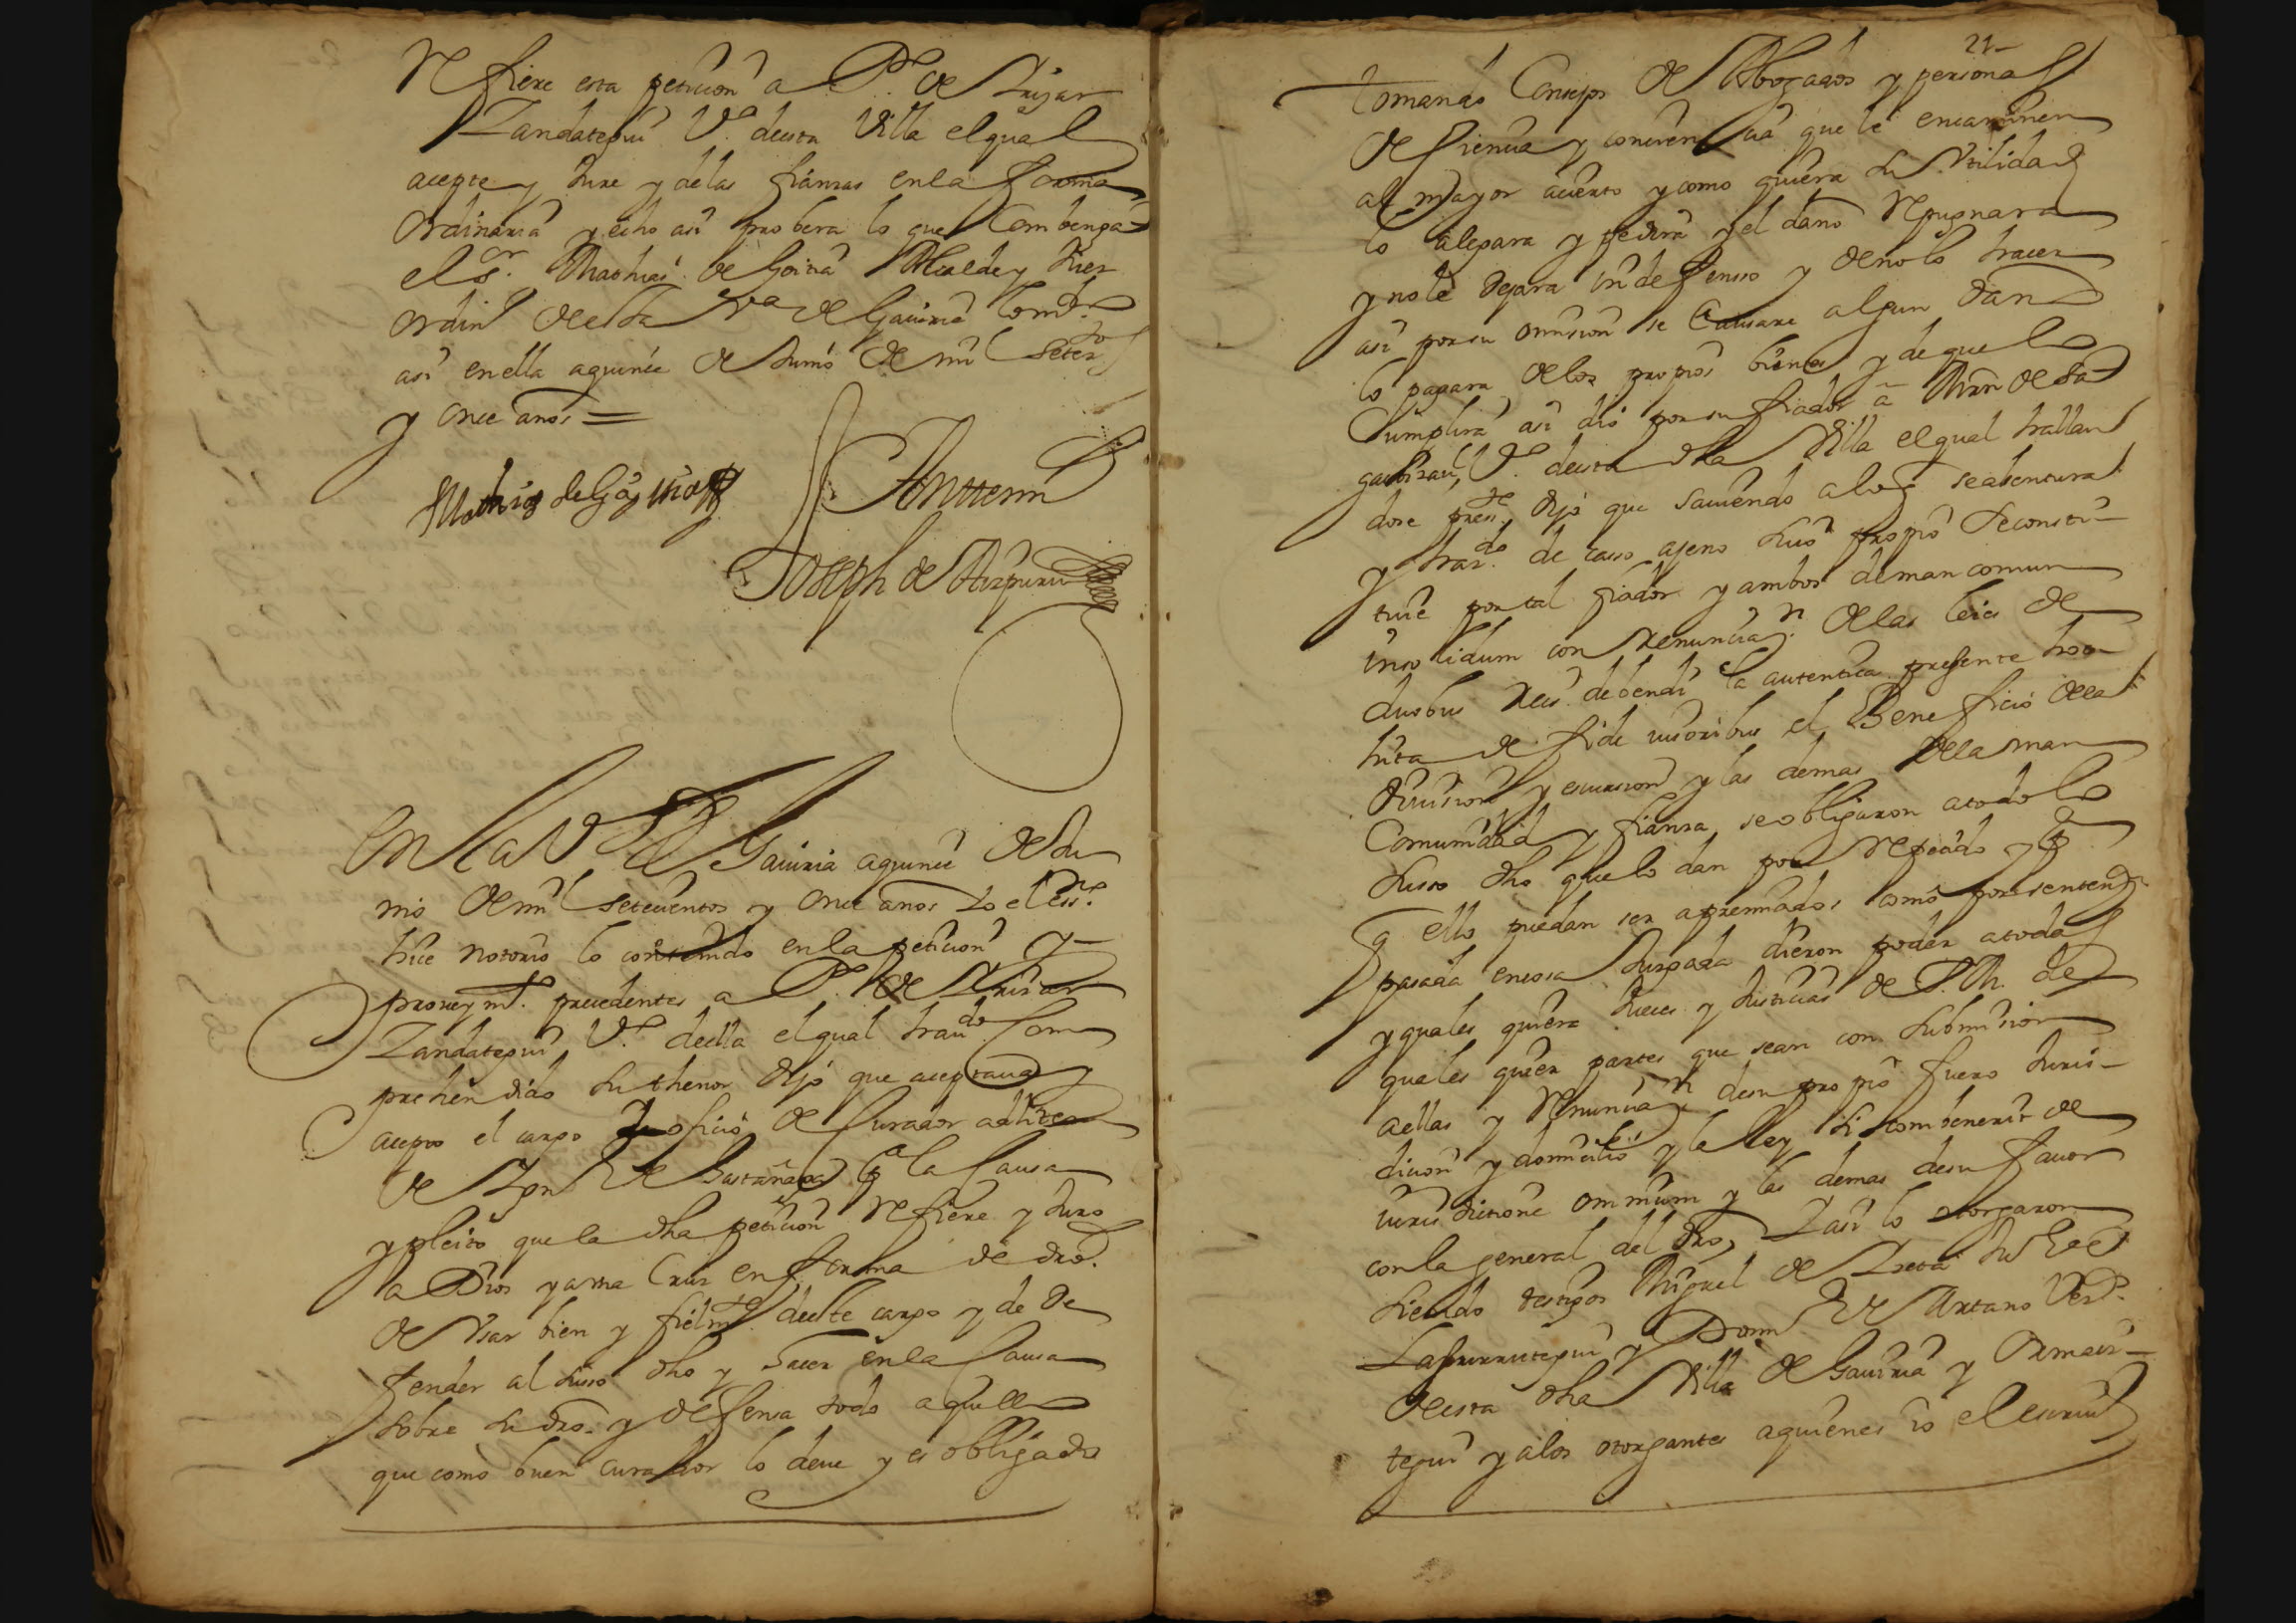 Refiere esta peticion a P.º de Yrijar
Zandategui V.º desta Villa el qual
acepte y Jure y de las fianzas en la forma
Ordinaria y echo asi probera lo que Combenga
el s.or Mathias de Goitia Alcalde y Juez
ordin.o desta V.a de Gaviria
asi en ella a quince de Junio de mil Setez.tos
y once anos =
Mathias de
Antemi
Joseph de Aizpuru
En la V.a de Gaviria a quince de Ju
nio de mil setecientos y once anos Yo el ess.no
hice notorio lo contenido en la peticion y
proveym.to precedentes a P.º de Yrijar
Zandategui V.º della el qual havdo Com
prehendido su thenor dijo que aceptava y
acepto el cargo y oficio de Curador adlitem
de Ygn.º de Bastanaga p.a la Causa
y pleito que la dha peticion refiere y Juro
a Dios y a una Cruz en forma de dro.
de Usar bien y fielm.te deeste cargo y de De
fender al suso dho y hacer en la Causa
sobre su dro. y defensa todo aquello
que como buen curador lo deve y es obligado
21
tomando Consejos de Abogados y personas
de Siencia y conciencia que le encaminen
al mayor acierto y como quiera su Utilidad
lo alegara y pedira y el daño Repugnara
y no le dejara indefenso y de no lo hacer
asi por su omision se Causare algun daño
lo pagara de los propios bienes y de que lo
Cumplira asi dio por su fiador a Mrn de Sa
V.º desta dha Villa el qual hallan
dose pres.te dijo que saviendo a lo q se abentura
y haz.do de caso ajeno suio propio se consti-
tuie por tal fiador y ambos de man comun
inso lidum con renuncia.n de las leies de
duobus Reis debendi la autentica presente hoc
hita de fide iusoribus el Beneficio de la
Division y escursion y las demas de la man
Comunidad y fianza se obligaron a todo lo
suso dho que lo dan por Repetido y p.a
q ello puedan ser apremiados como por sentenz.a
pasada en cosa Juzgada dieron poder a todas
y quales quiera Jueces y Justicias de S. M. de
quales quier partes que sean con submision
a ellas y Renuncia.n de su propio fuero Juris-
dicion y domicilio y la ley Si Combenerit de
iurisdictione omnium y las demas de su favor
con la general del dro, Y asi lo otorgaron
siendo testigos Miguel de
y Dom.º de Artano Vez.s
deesta dha Villa de Gaviria y Ormaiz-
tegui y a los otorgantes a quienes io el escriu.o